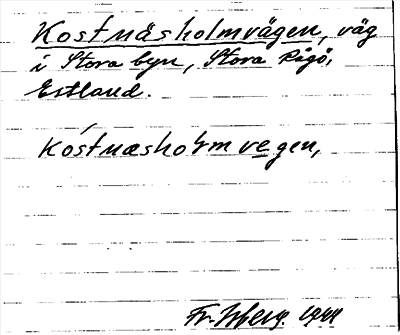 Kostnäsholmvägen, väg
i Stora byn, Stora Rågö,
Estland.
Kóstnæsholmvegen,
1944